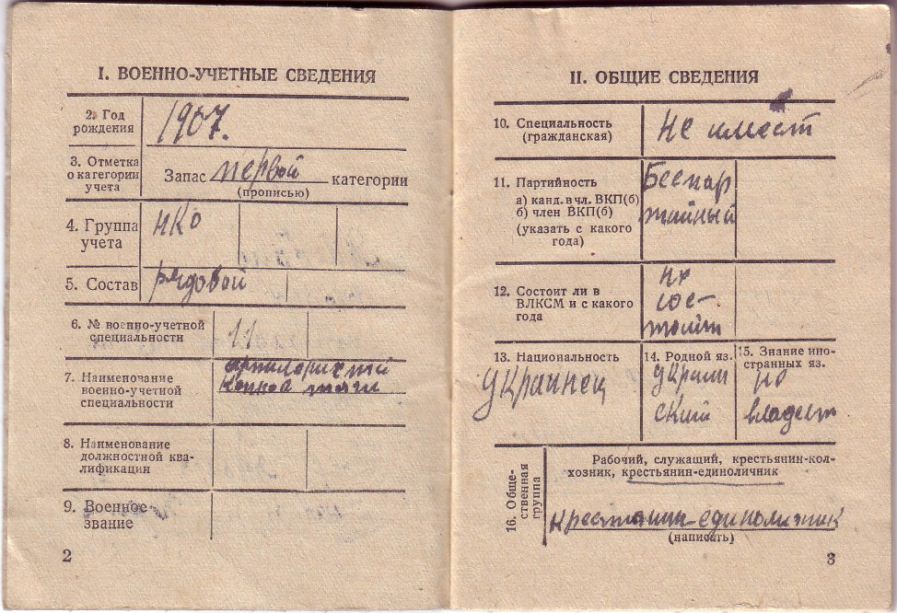 I. ВОЕННО-УЧЕТНЫЕ СВЕДЕНИЯ
2. Год
рождения
1907.
3. Отметка
о категории
учета
Запас первой категории
(прописью)
4. Группа
учета
НКО
5. Состав
рядовой
6. № военно-учетной
специальности
11
7. Наименование
военно-учетной
специальности
конной тяги
8. Наименование
должностной ква-
лификации
9. Военное
звание
2
II. ОБЩИЕ СВЕДЕНИЯ
10. Специальность
(гражданская)
Не имеет
11. Партийность
а) канд. в чл. ВКП(б)
б) член ВКП(б)
(указать с какого
года)
Беспар
тийный
12. Состоит ли в
ВЛКСМ и с какого
года
не
сос-
тоит
13. Национальность
Украинец
14. Родной яз.
Украин
ский
15. Знание ино-
странных яз.
не
владеет
16. Обще-
ственная
группа
Рабочий, служащий, крестьянин-кол-
хозник, крестьянин-единоличник
крестянин-единоличник
(написать)
3